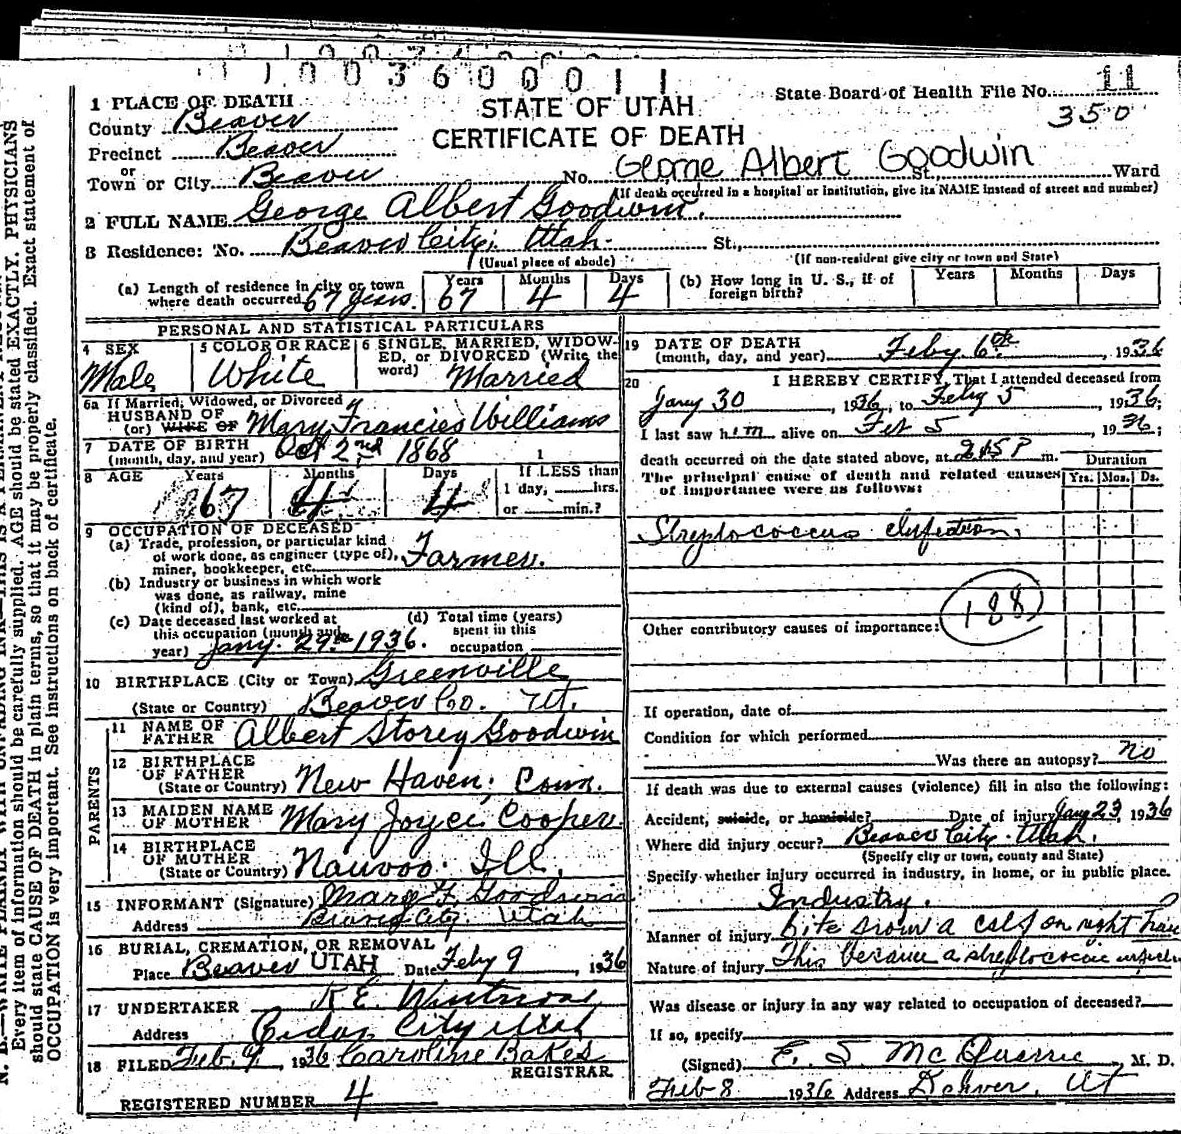 1003600011
State Board of Health File No. 11
350
STATE OF UTAH
CERTIFICATE OF DEATH
1 PLACE OF DEATH
County Beaver
Precinct Beaver
or
Town or City Beaver No. George Albert Goodwin St., Ward
(If death occurred in a hospital or institution, give its NAME instead of street and number)
2 FULL NAME George Albert Goodwin.
3 Residence: No. Beaver City, Utah. St.,
(Usual place of abode) (If non-resident give city or town and State)
(a) Length of residence in city or town where death occurred 67 years. Years 67 Months 4 Days 4
(b) How long in U. S., if of foreign birth? Years Months Days
PERSONAL AND STATISTICAL PARTICULARS
4 SEX Male
5 COLOR OR RACE White
6 SINGLE, MARRIED, WIDOWED, or DIVORCED (Write the word) Married
6a If Married, Widowed, or Divorced
HUSBAND OF
(or) WIFE OF Mary Francies Williams
7 DATE OF BIRTH
(month, day, and year) Oct 2nd 1868
8 AGE Years 67 Months 4 Days 4
If LESS than 1 1 day, hrs. or min.?
9 OCCUPATION OF DECEASED
(a) Trade, profession, or particular kind
of work done, as engineer (type of),
miner, bookkeeper, etc. Farmer.
(b) Industry or business in which work
was done, as railway, mine
(kind of), bank, etc.
(c) Date deceased last worked at
this occupation (month and
year) Jany. 29th 1936.
(d) Total time (years)
spent in this
occupation
10 BIRTHPLACE (City or Town) Greenville
(State or Country) Beaver Co. Ut.
PARENTS
11 NAME OF FATHER Albert Storey Goodwin
12 BIRTHPLACE OF FATHER
(State or Country) New Haven, Conn.
13 MAIDEN NAME OF MOTHER Mary Joyce Cooper.
14 BIRTHPLACE OF MOTHER
(State or Country) Nauvoo. Ill.
15 INFORMANT (Signature) Mary F. Goodwin
Address Beaver City, Utah
16 BURIAL, CREMATION, OR REMOVAL
Place Beaver UTAH Date Feby 9, 1936
17 UNDERTAKER R E
Address Cedar City Utah
18 FILED Feb. 9, 1936 Caroline Bakes
REGISTRAR.
REGISTERED NUMBER 4
19 DATE OF DEATH
(month, day, and year) Feby. 6th, 1936
20 I HEREBY CERTIFY, That I attended deceased from
Jany 30, 1936, to Feby 5, 1936;
I last saw him alive on Feb 5, 1936;
death occurred on the date stated above, at 2:15 P m. Duration
The principal cause of death and related causes
of importance were as follows: Yrs. Mos. Ds.
Streptococcus Infection.
188
Other contributory causes of importance:
If operation, date of
Condition for which performed
Was there an autopsy? no
If death was due to external causes (violence) fill in also the following:
Accident, suicide, or homicide? Date of injury Jany 23, 1936
Where did injury occur? Beaver City. Utah.
(Specify city or town, county and State)
Specify whether injury occurred in industry, in home, or in public place.
Industry.
Manner of injury Bite from a calf on right
Nature of injury This became a streptococcic
Was disease or injury in any way related to occupation of deceased?
If so, specify
(Signed) E. S. McQuarrie, M. D.
Feb 8 1936 Address Ut
Every item of information should be carefully supplied. AGE should be stated EXACTLY. PHYSICIANS
should state CAUSE OF DEATH in plain terms, so that it may be properly classified. Exact statement of
OCCUPATION is very important. See instructions on back of certificate.